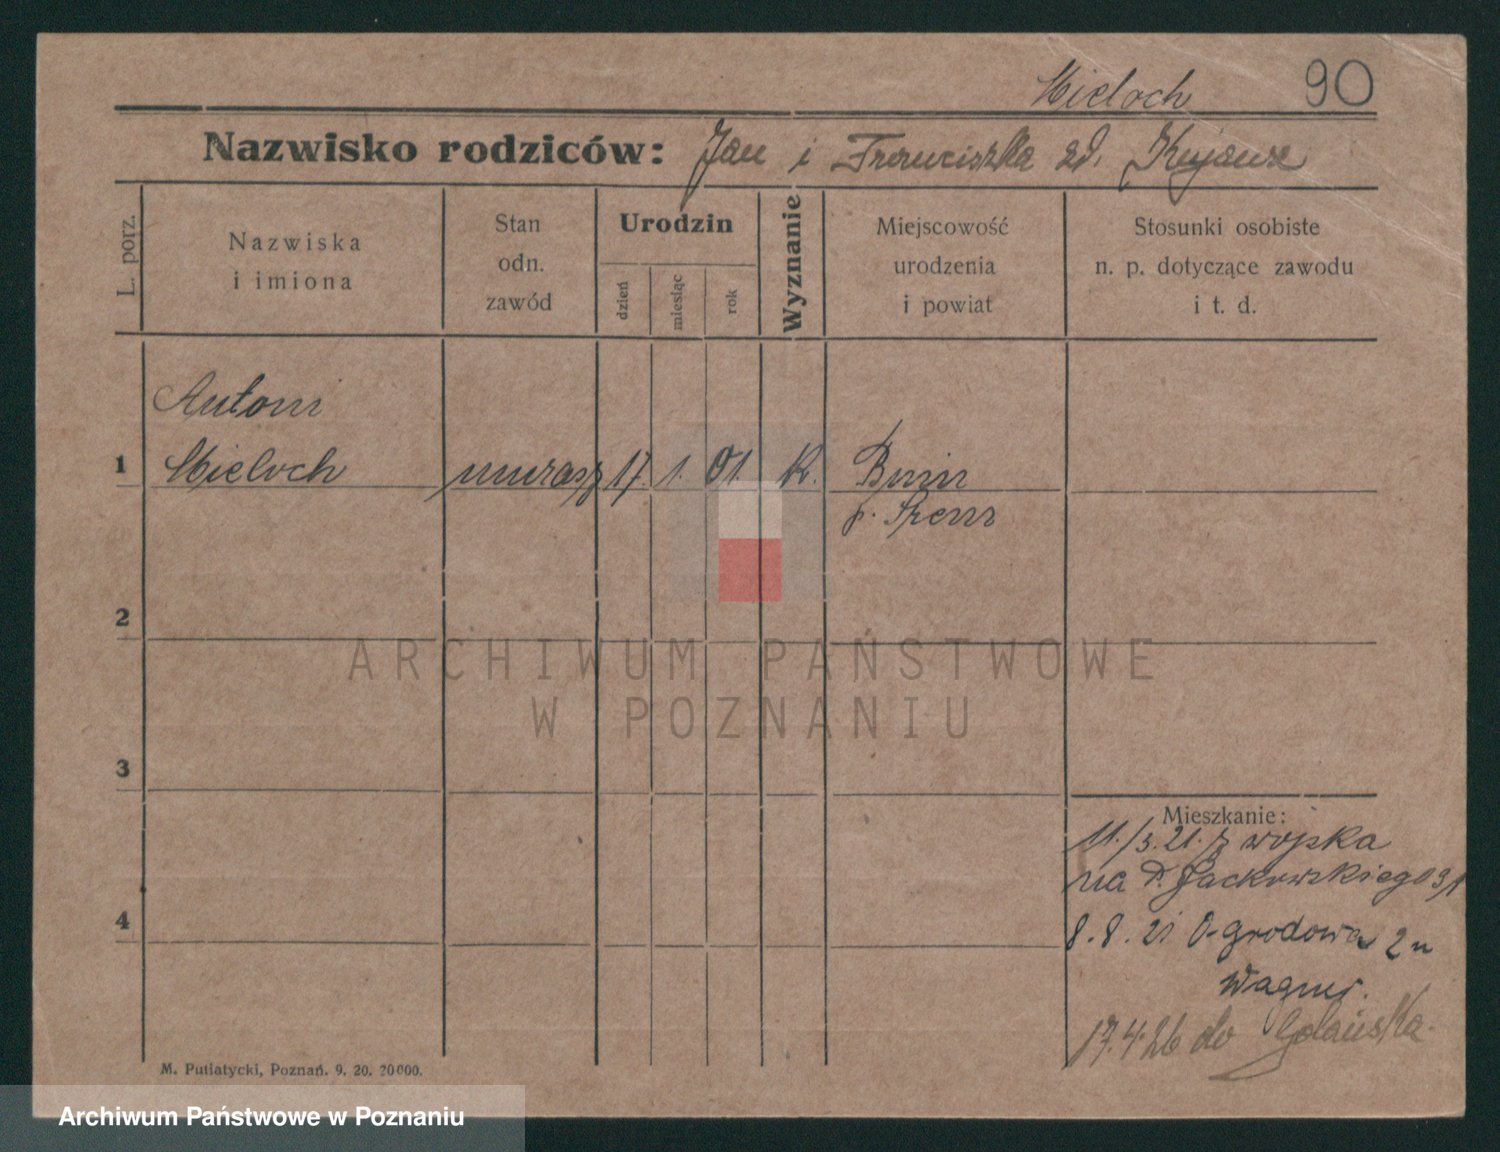 Mieloch 90
Nazwisko rodziców: Jan i Franciszka zd. Kujawa
L. porz.
Nazwiska
i imiona
Stan
odn.
zawód
Urodzin
dzień
miesiąc
rok
Wyznanie
Miejscowość
urodzenia
i powiat
Stosunki osobiste
n. p. dotyczące zawodu
i t. d.
Antoni
1 Mieloch murarz 17. 1. 01. K. Bnin
p. Śrem
2
3
4
Mieszkanie:
11./3.21. z wojska
na P. Jackowskiego 31
8.8.21 Ogrodowa 2
Wagner.
17.4.26 do
M. Putiatycki, Poznań. 9. 20. 20000.
ARCHIWUM PAŃSTWOWE
W POZNANIU
Archiwum Państwowe w Poznaniu